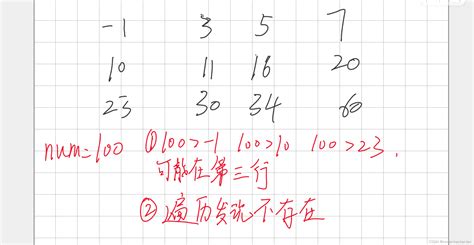 -1 3 5 7
10 11 16 20
23 30 34 60
num=100 ①100>-1 100>10 100>23.
可能在第三行
②遍历发现不存在